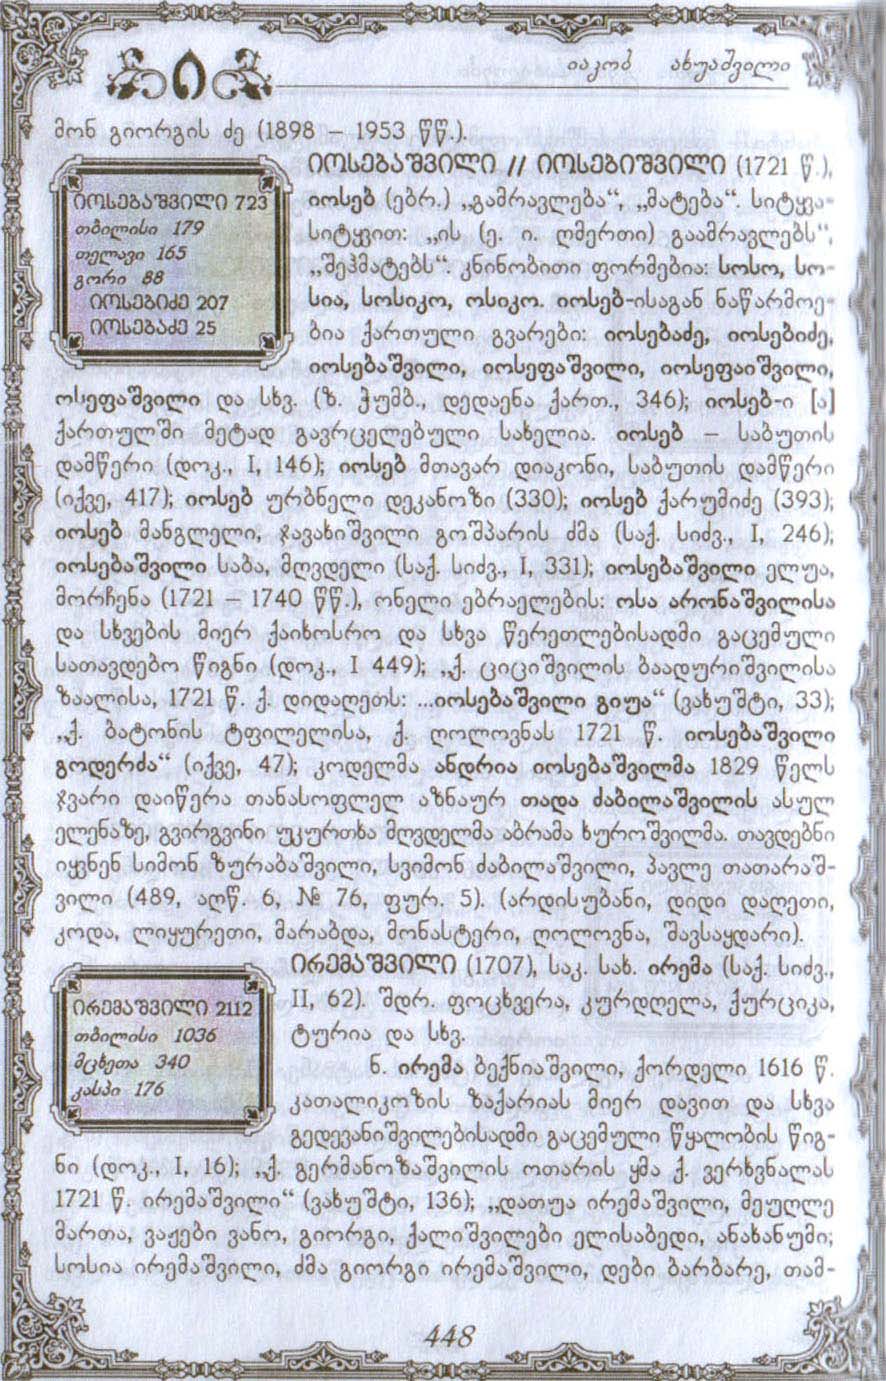 ი
იაკობ ახუაშვილი
მონ გიორგის ძე (1898 – 1953 წწ.).
იოსებაშვილი // იოსებიშვილი (1721 წ.),
იოსებაშვილი 723
თბილისი 179
თელავი 165
გორი 88
იოსებიძე 207
იოსებაძე 25
იოსებ (ებრ.) „გამრავლება“, „მატება“. სიტყვა-
სიტყვით: „ის (ე. ი. ღმერთი) გაამრავლებს“,
„შეჰმატებს“ კნინობითი ფორმებია: სოსო, სო-
სია, სოსიკო, ოსიკო. იოსებ-ისაგან ნაწარმოე-
ბია ქართული გვარები: იოსებაძე, იოსებიძე,
იოსებაშვილი, იოსეფაშვილი, იოსეფაიშვილი,
ოსეფაშვილი და სხვ. (ზ. ჭუმბ., დედაენა ქართ., 346); იოსებ-ი [ა]
ქართულში მეტად გავრცელებული სახელია. იოსებ – საბუთის
დამწერი (დოკ., I, 146); იოსებ მთავარ დიაკონი, საბუთის დამწერი
(იქვე, 417); იოსებ ურბნელი დეკანოზი (330); იოსებ ქარუმიძე (393);
იოსებ მანგლელი, ჯავახიშვილი გოშპარის ძმა (საქ. სიძვ., I, 246);
იოსებაშვილი საბა, მღვდელი (საქ. სიძვ., I, 331); იოსებაშვილი ელუა,
მორჩენა (1721 – 1740 წწ.), ონელი ებრაელების: ოსა არონაშვილისა
და სხვების მიერ ქაიხოსრო და სხვა წერეთლებისადმი გაცემული
სათავდებო წიგნი (დოკ., I 449); „ქ. ციციშვილის ბაადურიშვილისა
ზაალისა, 1721 წ. ქ. დიდაღეთს: ...იოსებაშვილი გიუა“ (ვახუშტი, 33);
„ქ. ბატონის ტფილელისა, ქ. ღოლოვნას 1721 წ. იოსებაშვილი
გოდერძა“ (იქვე, 47); კოდელმა ანდრია იოსებაშვილმა 1829 წელს
ჯვარი დაიწერა თანასოფლელ აზნაურ თადა ძაბილაშვილის ასულ
ელენაზე, გვირგვინი უკურთხა მღვდელმა აბრამა ხუროშვილმა. თავდებნი
იყვნენ სიმონ ზურაბაშვილი, სვიმონ ძაბილაშვილი, პავლე თათარაშ-
ვილი (489, აღწ. 6, № 76, ფურ. 5). (არდისუბანი, დიდი დაღეთი,
კოდა, ლიყურეთი, მარაბდა, მონასტერი, ღოლოვნა, შავსაყდარი).
ირემაშვილი (1707), საკ. სახ. ირემა (საქ. სიძვ.,
ირემაშვილი 2112
თბილისი 1036
მცხეთა 340
კასპი 176
II, 62). შდრ. ფოცხვერა, კურდღელა, ქურციკა,
ტურია და სხვ.
ნ. ირემა ბექნიაშვილი, ქორდელი 1616 წ.
კათალიკოზის ზაქარიას მიერ დავით და სხვა
გედევანიშვილებისადმი გაცემული წყალობის წიგ-
ნი (დოკ., I, 16); „ქ. გერმანოზაშვილის ოთარის ყმა ქ. ვერხვნალას
1721 წ. ირემაშვილი“ (ვახუშტი, 136); „დათუა ირემაშვილი, მეუღლე
მართა, ვაჟები ვანო, გიორგი, ქალიშვილები ელისაბედი, ანახანუმი;
სოსია ირემაშვილი, ძმა გიორგი ირემაშვილი, დები ბარბარე, თამ-
448